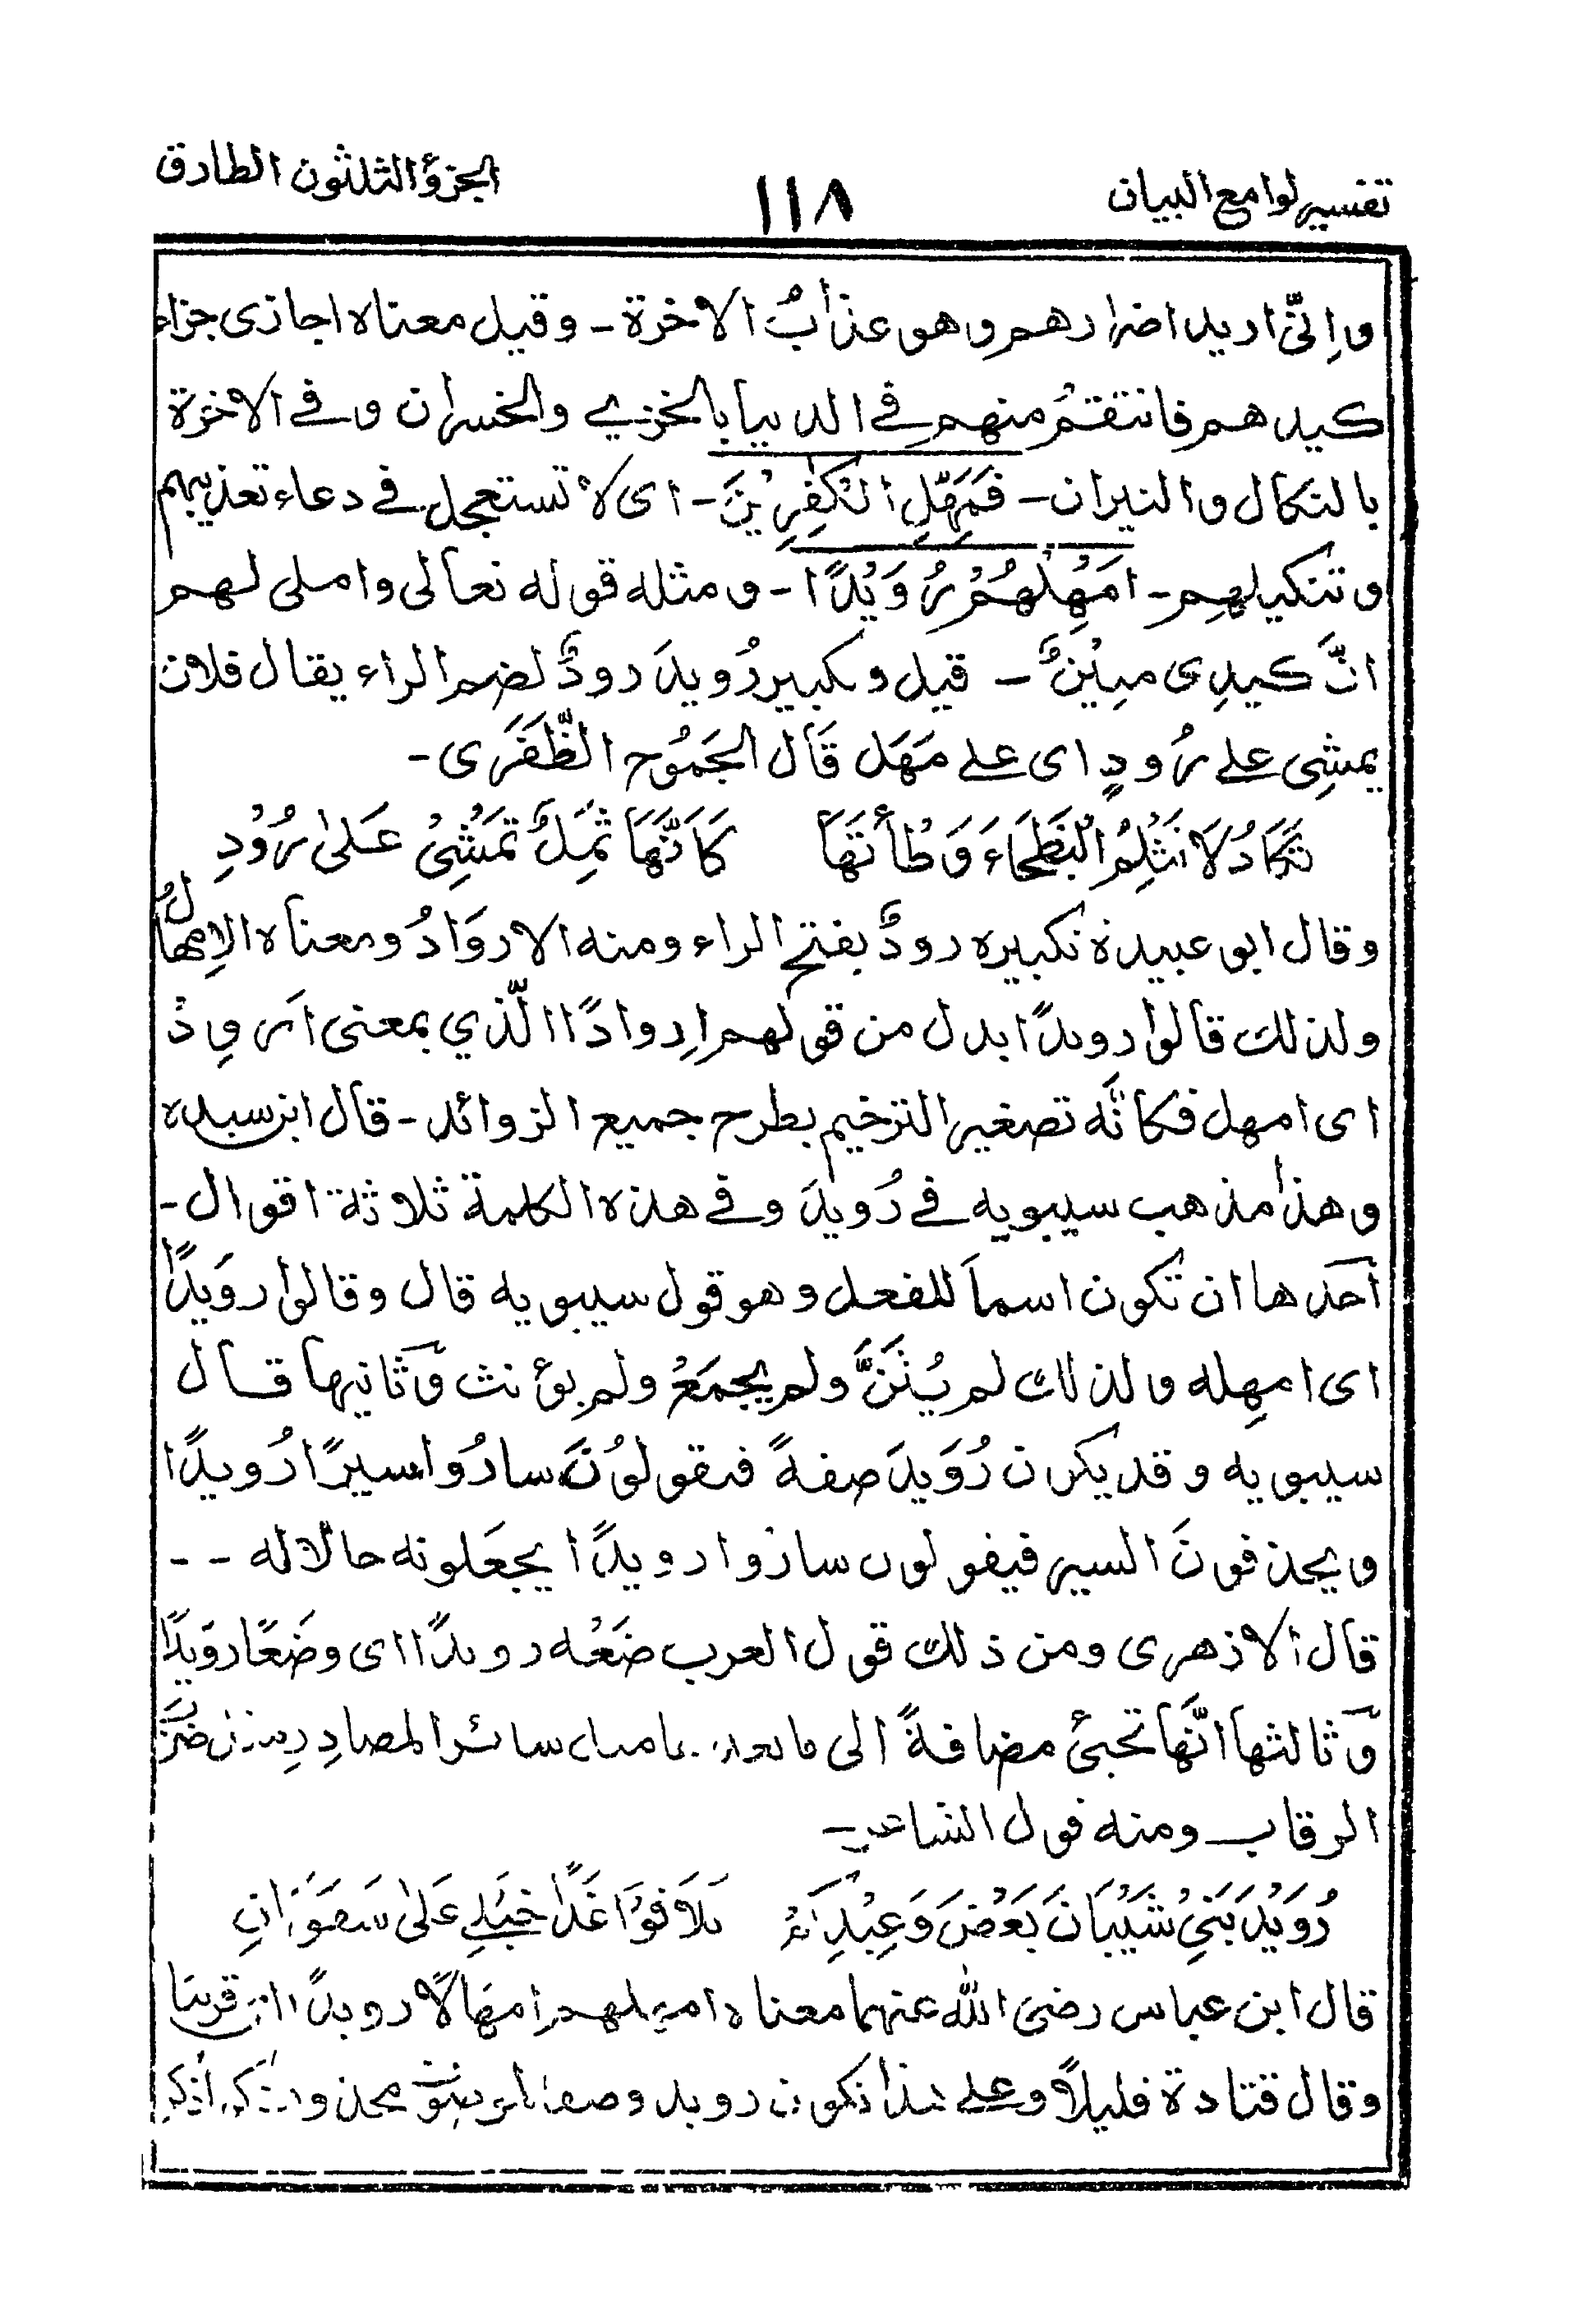 تفسير لوامع البيان
١١٨
الجزؤ الثلثون الطارق
و اِنّى اريد اضرارهم و هو عذابُ الاخرة - وقيل معناه اجازى جزاء
كيدهم فانتقمُ منهم فى الدنيا بالخزي والخسران و فى الاخرة
بالنكال و النيران - فَمَهِّلِ الْكٰفِرِيْنَ - اى لا تستعجل فى دعاء تعذيبهم
و تنكيلهم - اَمْهِلْهُمْ رُوَيْدًا - و مثله قوله تعالى واملى لهم
انَّ كيدِى متِيْنٌ - قيل وتكبير رُويدَ رودٌ لضم الراء يقال فلان
يمشِى على رُودٍ اى على مَهَل قَال الجَمُوح الظَّفَرى -
تَكَادُ لَا تَثْلِمُ الْبَطْحَاءَ وَطْأَتُهَا كَاَنَّهَا ثَمِلٌ تَمْشِىْ عَلىٰ رُوْدِ
وقال ابو عبيدة تكبيره رودٌ بفتح الراء ومنه الاروَادُ ومعناه الاِمهالُ
ولذلك قالوا رويدًا بدل من قولهم اِروادًا الّذي بمعنى اَرْوِدْ
اى امهل فكانَّه تصغير الترخيم بطرح جميع الزوائد - قال ابن سيده
و هذا مذهب سيبويه فى رُويدَ و فى هذه الكلمة ثلاثة اقوال -
اَحَدها ان تكون اسماً للفعل و هو قول سيبويه قال و قالوا روَيدًا
اى امهِله و لذلك لم يُثَنَّ ولم يجمَعْ ولم يؤنث وَثانيها قال
سيبويه و قد يكون رُوَيدَ صفةً فيقولوُنَ سارُوا سيرًا رُويدًا
و يحذفونَ السير فيقولون ساروا رويدًا يجعَلونه حالا له - -
قال الازهرى ومن ذلك قول العرب ضَعْه رويدًا اى وضَعًا رويدًا
وَثالثها انَّها تجيئُ مضافةً الى ما بعدها سائر المصادِر ضَرْبَ
الرقاب ومنه قول الشاعر -
رُوَيْدَ بَنِىْ شَيْبَانَ بَعْضَ وَعِيْدِكُمْ تُلَاقُوْا غَدًا خَيْلِى عَلىٰ سَفَوَانِ
قال ابن عباس رضى الله عنهما معناه امهلهم امهَالًا رويدًا اى قريبا
وقال قتادة قليلًا وعلى هذا تكون رويد وصفا لموصوف محذوف